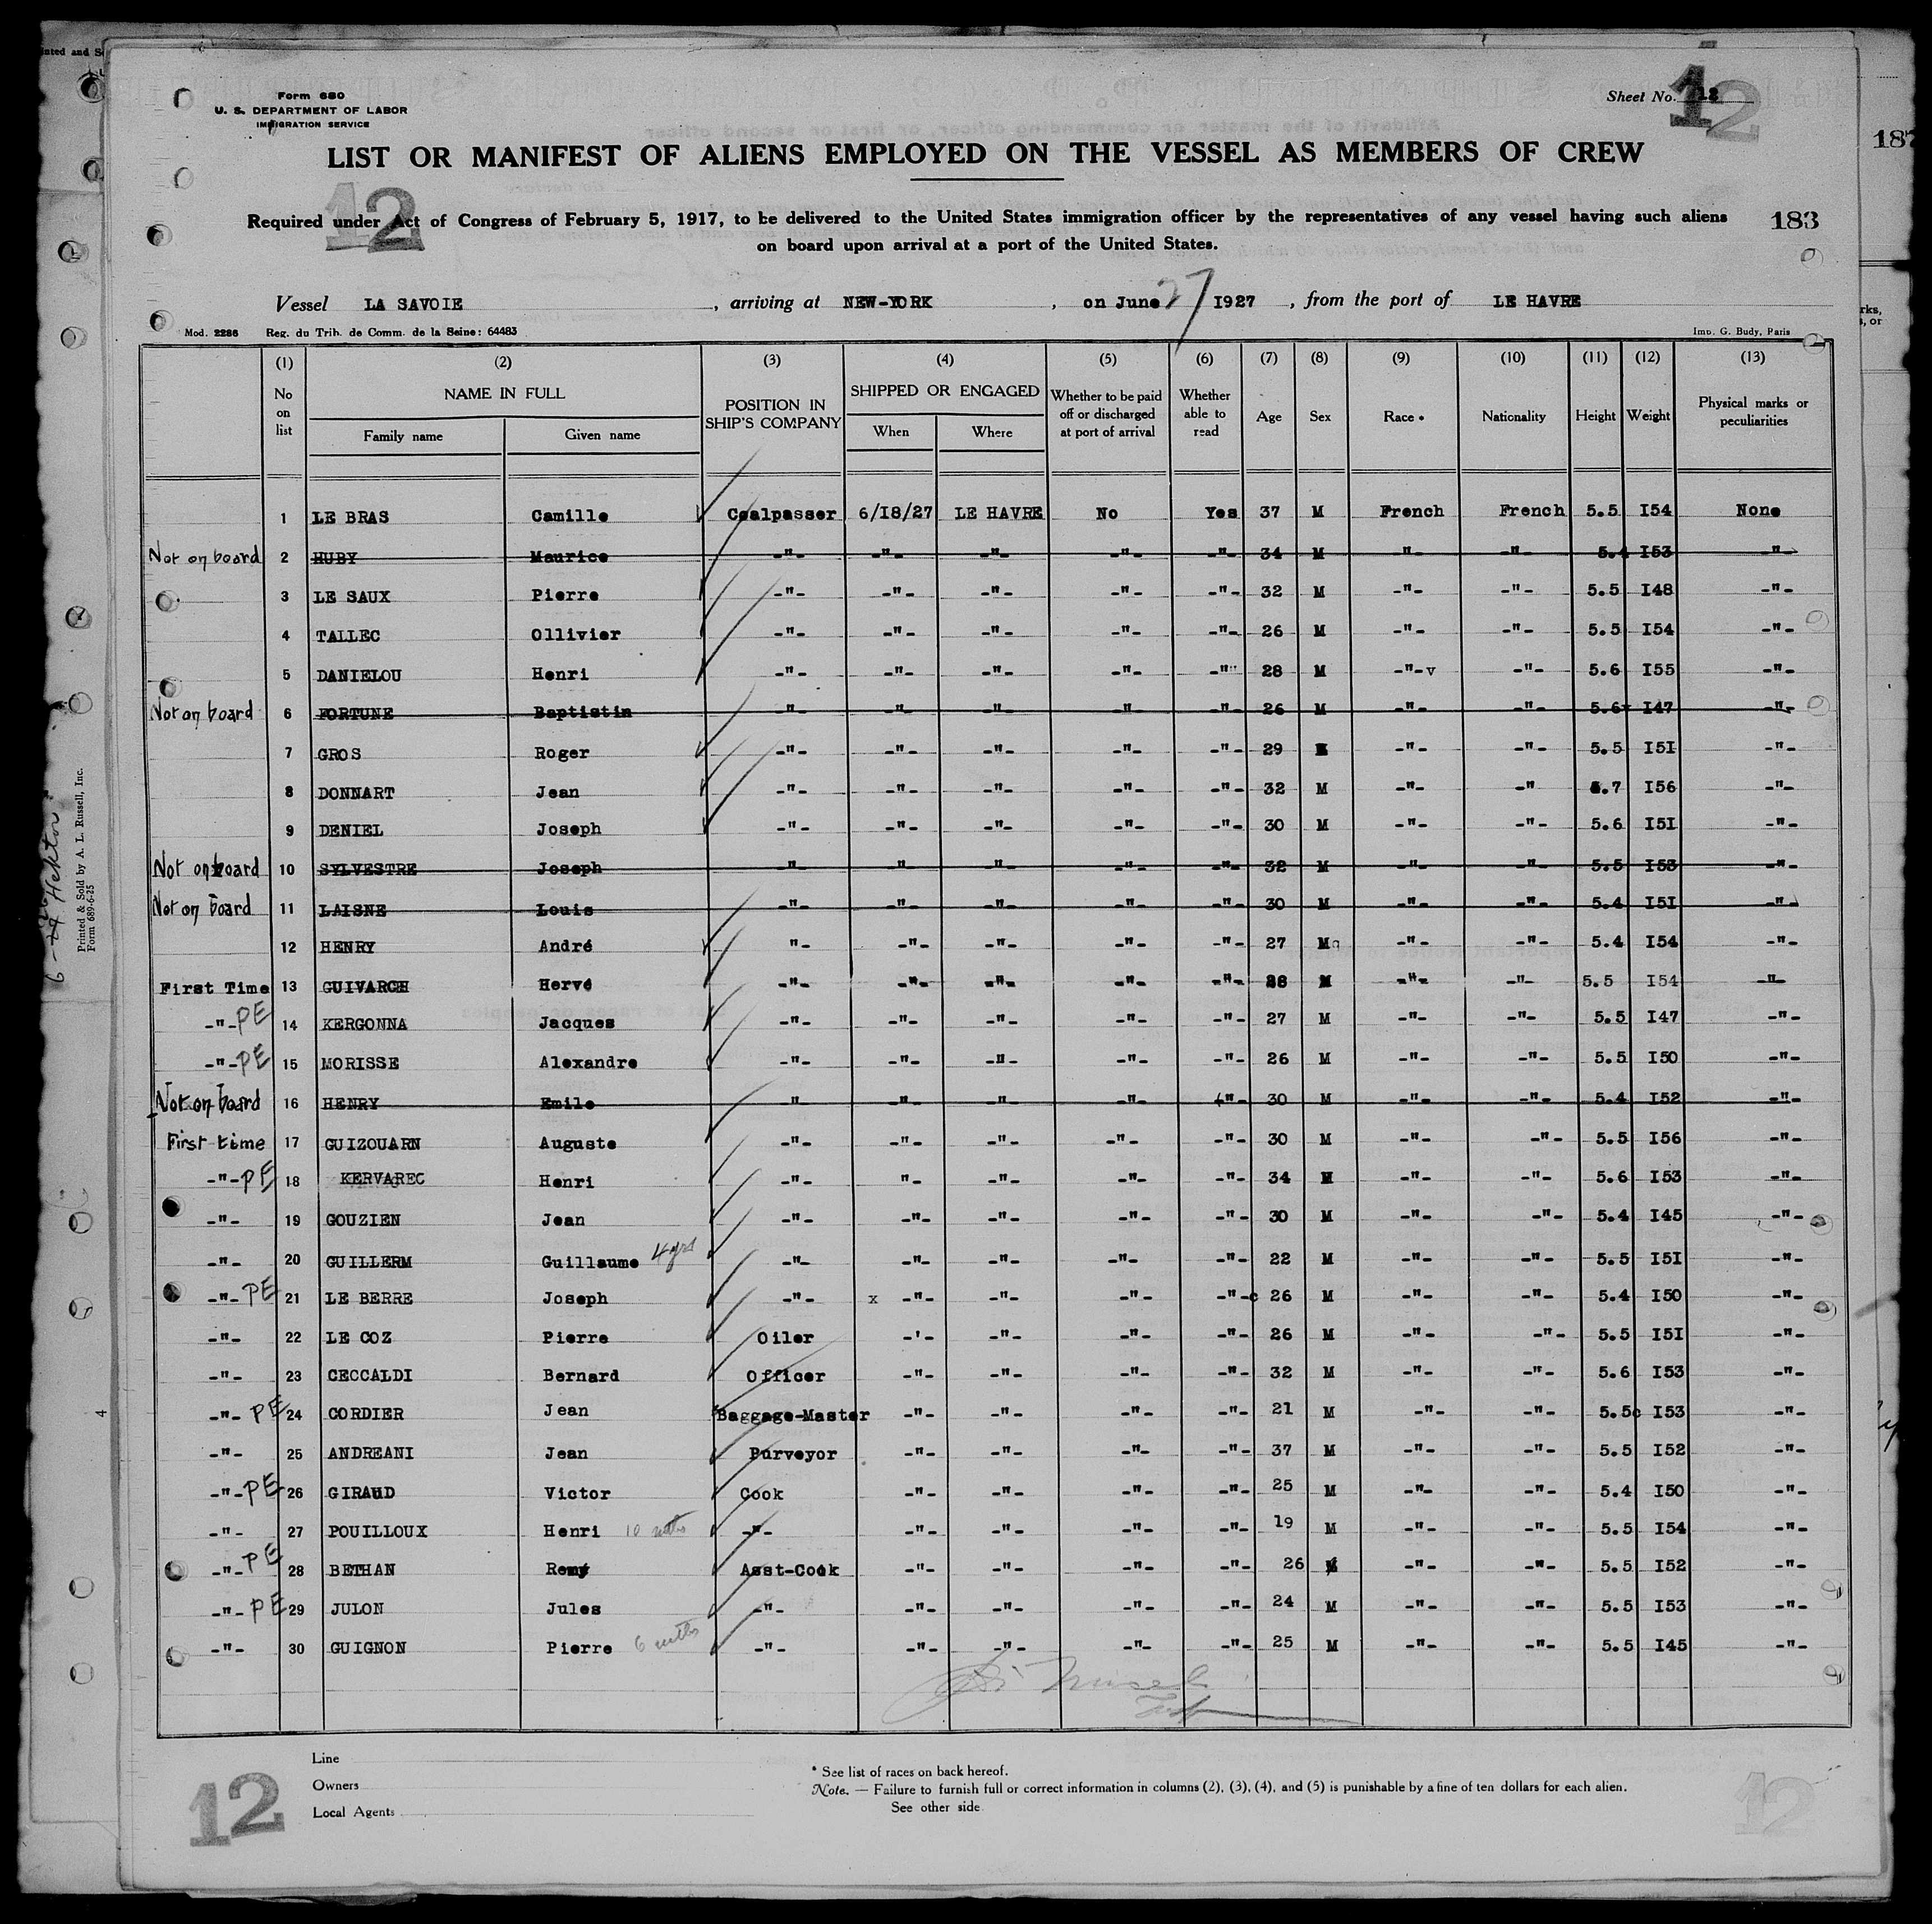 Form 680
U. S. DEPARTMENT OF LABOR
IMMIGRATION SERVICE
Sheet No. 12
12
12
LIST OR MANIFEST OF ALIENS EMPLOYED ON THE VESSEL AS MEMBERS OF CREW
Required under Act of Congress of February 5, 1917, to be delivered to the United States immigration officer by the representatives of any vessel having such aliens
on board upon arrival at a port of the United States.
183
Vessel LA SAVOIE, arriving at NEW-YORK, on June 27 I927, from the port of LE HAVRE
Mod. 2286 Reg. du Trib. de Comm. de la Seine: 64483 Imp. G. Budy, Paris
(1) (2) (3) (4) (5) (6) (7) (8) (9) (10) (11) (12) (13)
No on list NAME IN FULL Family name Given name POSITION IN SHIP'S COMPANY SHIPPED OR ENGAGED When Where Whether to be paid off or discharged at port of arrival Whether able to read Age Sex Race * Nationality Height Weight Physical marks or peculiarities
1 LE BRAS Camille Coalpasser 6/I8/27 LE HAVRE No Yes 37 M French French 5.5 I54 None
Not on board 2 HUBY Maurice -"- -"- -"- -"- -"- 34 M -"- -"- 5.4 I53 -"-
3 LE SAUX Pierre -"- -"- -"- -"- -"- 32 M -"- -"- 5.5 I48 -"-
4 TALLEC Ollivier -"- -"- -"- -"- -"- 26 M -"- -"- 5.5 I54 -"-
5 DANIELOU Henri -"- -"- -"- -"- -"- 28 M -"-v -"- 5.6 I55 -"-
Not on board 6 FORTUNE Baptistin -"- -"- -"- -"- -"- 26 M -"- -"- 5.6 I47 -"-
7 GROS Roger -"- -"- -"- -"- -"- 29 M -"- -"- 5.5 I5I -"-
8 DONNART Jean -"- -"- -"- -"- -"- 32 M -"- -" 5.7 I56 -"-
9 DENIEL Joseph -"- -"- -"- -"- -"- 30 M -"- -"- 5.6 I5I -"-
Not on board 10 SYLVESTRE Joseph -"- -"- -"- -"- -"- 32 M -"- -"- 5.5 I53 -"-
Not on board 11 LAISNE Louis -"- -"- -"- -"- -"- 30 M -"- -"- 5.4 I5I -"-
12 HENRY André "- -"- -"- -"- -"- 27 M -"- -"- 5.4 I54 -"-
First Time 13 GUIVARCH Hervé -"- -"- -"- -"- -"- 28 M -"- -"- 5.5 I54 -"-
-"- PE 14 KERGONNA Jacques -"- -"- -"- -"- -"- 27 M -"- -"- 5.5 I47 -"-
-"- PE 15 MORISSE Alexandre -"- -"- -"- -"- -"- 26 M -"- -"- 5.5 I50 -"-
Not on board 16 HENRY Emile -"- -"- -"- -"- -"- 30 M -"- -"- 5.4 I52 -"-
First time 17 GUIZOUARN Auguste -"- -"- -"- -"- -"- 30 M -"- -"- 5.5 I56 -"-
-"- PE 18 KERVAREC Henri -"- "- -"- -"- -"- 34 M -"- -"- 5.6 I53 -"-
-"- 19 GOUZIEN Jean -"- -"- -"- -"- -"- 30 M -"- -"- 5.4 I45 -"-
-"- 20 GUILLERM Guillaume 4 yrs -"- -"- -"- -"- -"- 22 M -"- -"- 5.5 I5I -"-
-"- PE 21 LE BERRE Joseph -"- x -"- -"- -"- -"- 26 M -"- -"- 5.4 I50 -"-
-"- 22 LE COZ Pierre Oiler -'- -"- -"- -"- 26 M -"- -"- 5.5 I5I -"-
-"- 23 CECCALDI Bernard Officer -"- -"- -"- -"- 32 M -"- -"- 5.6 I53 -"-
-"- PE 24 CORDIER Jean Baggage-Master -"- -"- -"- -"- 21 M -"- -"- 5.5 I53 -"-
-"- 25 ANDREANI Jean Purveyor -"- -"- -"- -"- 37 M -"- -"- 5.5 I52 -"-
-"- PE 26 GIRAUD Victor Cook -"- -"- -"- -"- 25 M -"- -"- 5.4 I50 -"-
-"- 27 POUILLOUX Henri 10 mths -"- -"- -"- -"- -"- 19 M -"- -"- 5.5 I54 -"-
-"- PE 28 BETHAN Remy Asst-Cook -"- -"- -"- -"- 26 M -"- -"- 5.5 I52 -"-
-"- PE 29 JULON Jules -"- -"- -"- -"- -"- 24 M -"- -"- 5.5 I53 -"-
-"- 30 GUIGNON Pierre 6 mths -"- -"- -"- -"- -"- 25 M -"- -"- 5.5 I45 -"-
Line
Owners
Local Agents
* See list of races on back hereof.
Note. — Failure to furnish full or correct information in columns (2), (3), (4), and (5) is punishable by a fine of ten dollars for each alien.
See other side
12
12
Printed & Sold by A. L. Russell, Inc.
Form 689-6-25
4